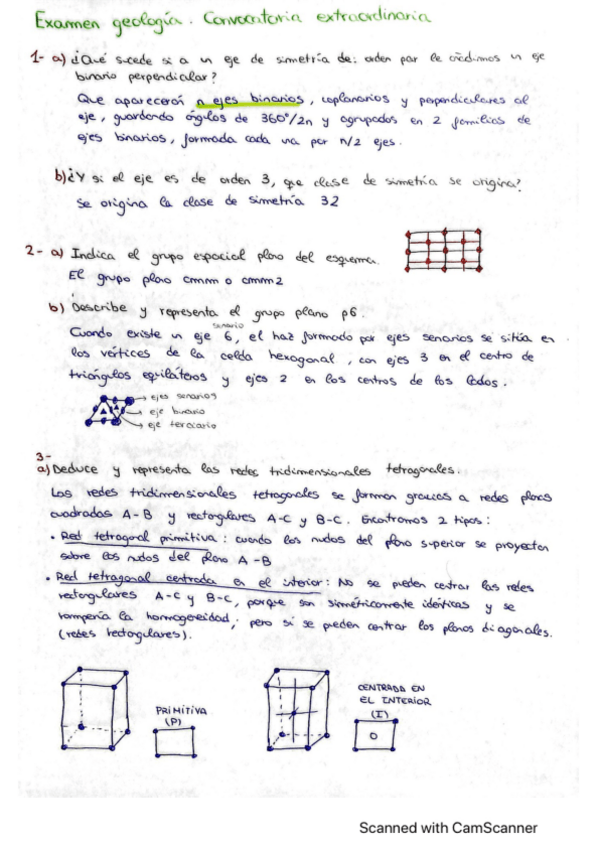 Examen geología. Convocatoria extraordinaria
1- a) ¿Qué sucede si a un eje de simetría de: orden par le añadimos un eje
binario perpendicular?
Que aparecerán n ejes binarios, coplanarios y perpendiculares al
eje, guardando ángulos de 360º/2n y agrupados en 2 familias de
ejes binarios, formada cada una por n/2 ejes.
b) ¿Y si el eje es de orden 3, que clase de simetría se origina?
Se origina la clase de simetría 32
2- a) Indica el grupo espacial plano del esquema.
El grupo plano cmm o cmm2
b) Describe y representa el grupo plano p6.
senario
Cuando existe un eje 6, el haz formado por ejes senarios se sitúa en
los vértices de la celda hexagonal, con ejes 3 en el centro de
triángulos equiláteros y ejes 2 en los centros de los lados.
ejes senarios
eje binario
eje terciario
3-
a) Deduce y representa las redes tridimensionales tetragonales.
Las redes tridimensionales tetragonales se forman gracias a redes planas
cuadradas A-B y rectangulares A-C y B-C. Encontramos 2 tipos:
• Red tetragonal primitiva: cuando los nudos del plano superior se proyectan
sobre los nudos del plano A-B
• Red tetragonal centrada en el interior: No se pueden centrar las redes
rectangulares A-C y B-C, porque son simétricamente idénticas y se
rompería la homogeneidad; pero si se pueden centrar los planos diagonales.
(redes rectangulares).
PRIMITIVA
(P)
CENTRADA EN
EL INTERIOR
(I)
Scanned with CamScanner